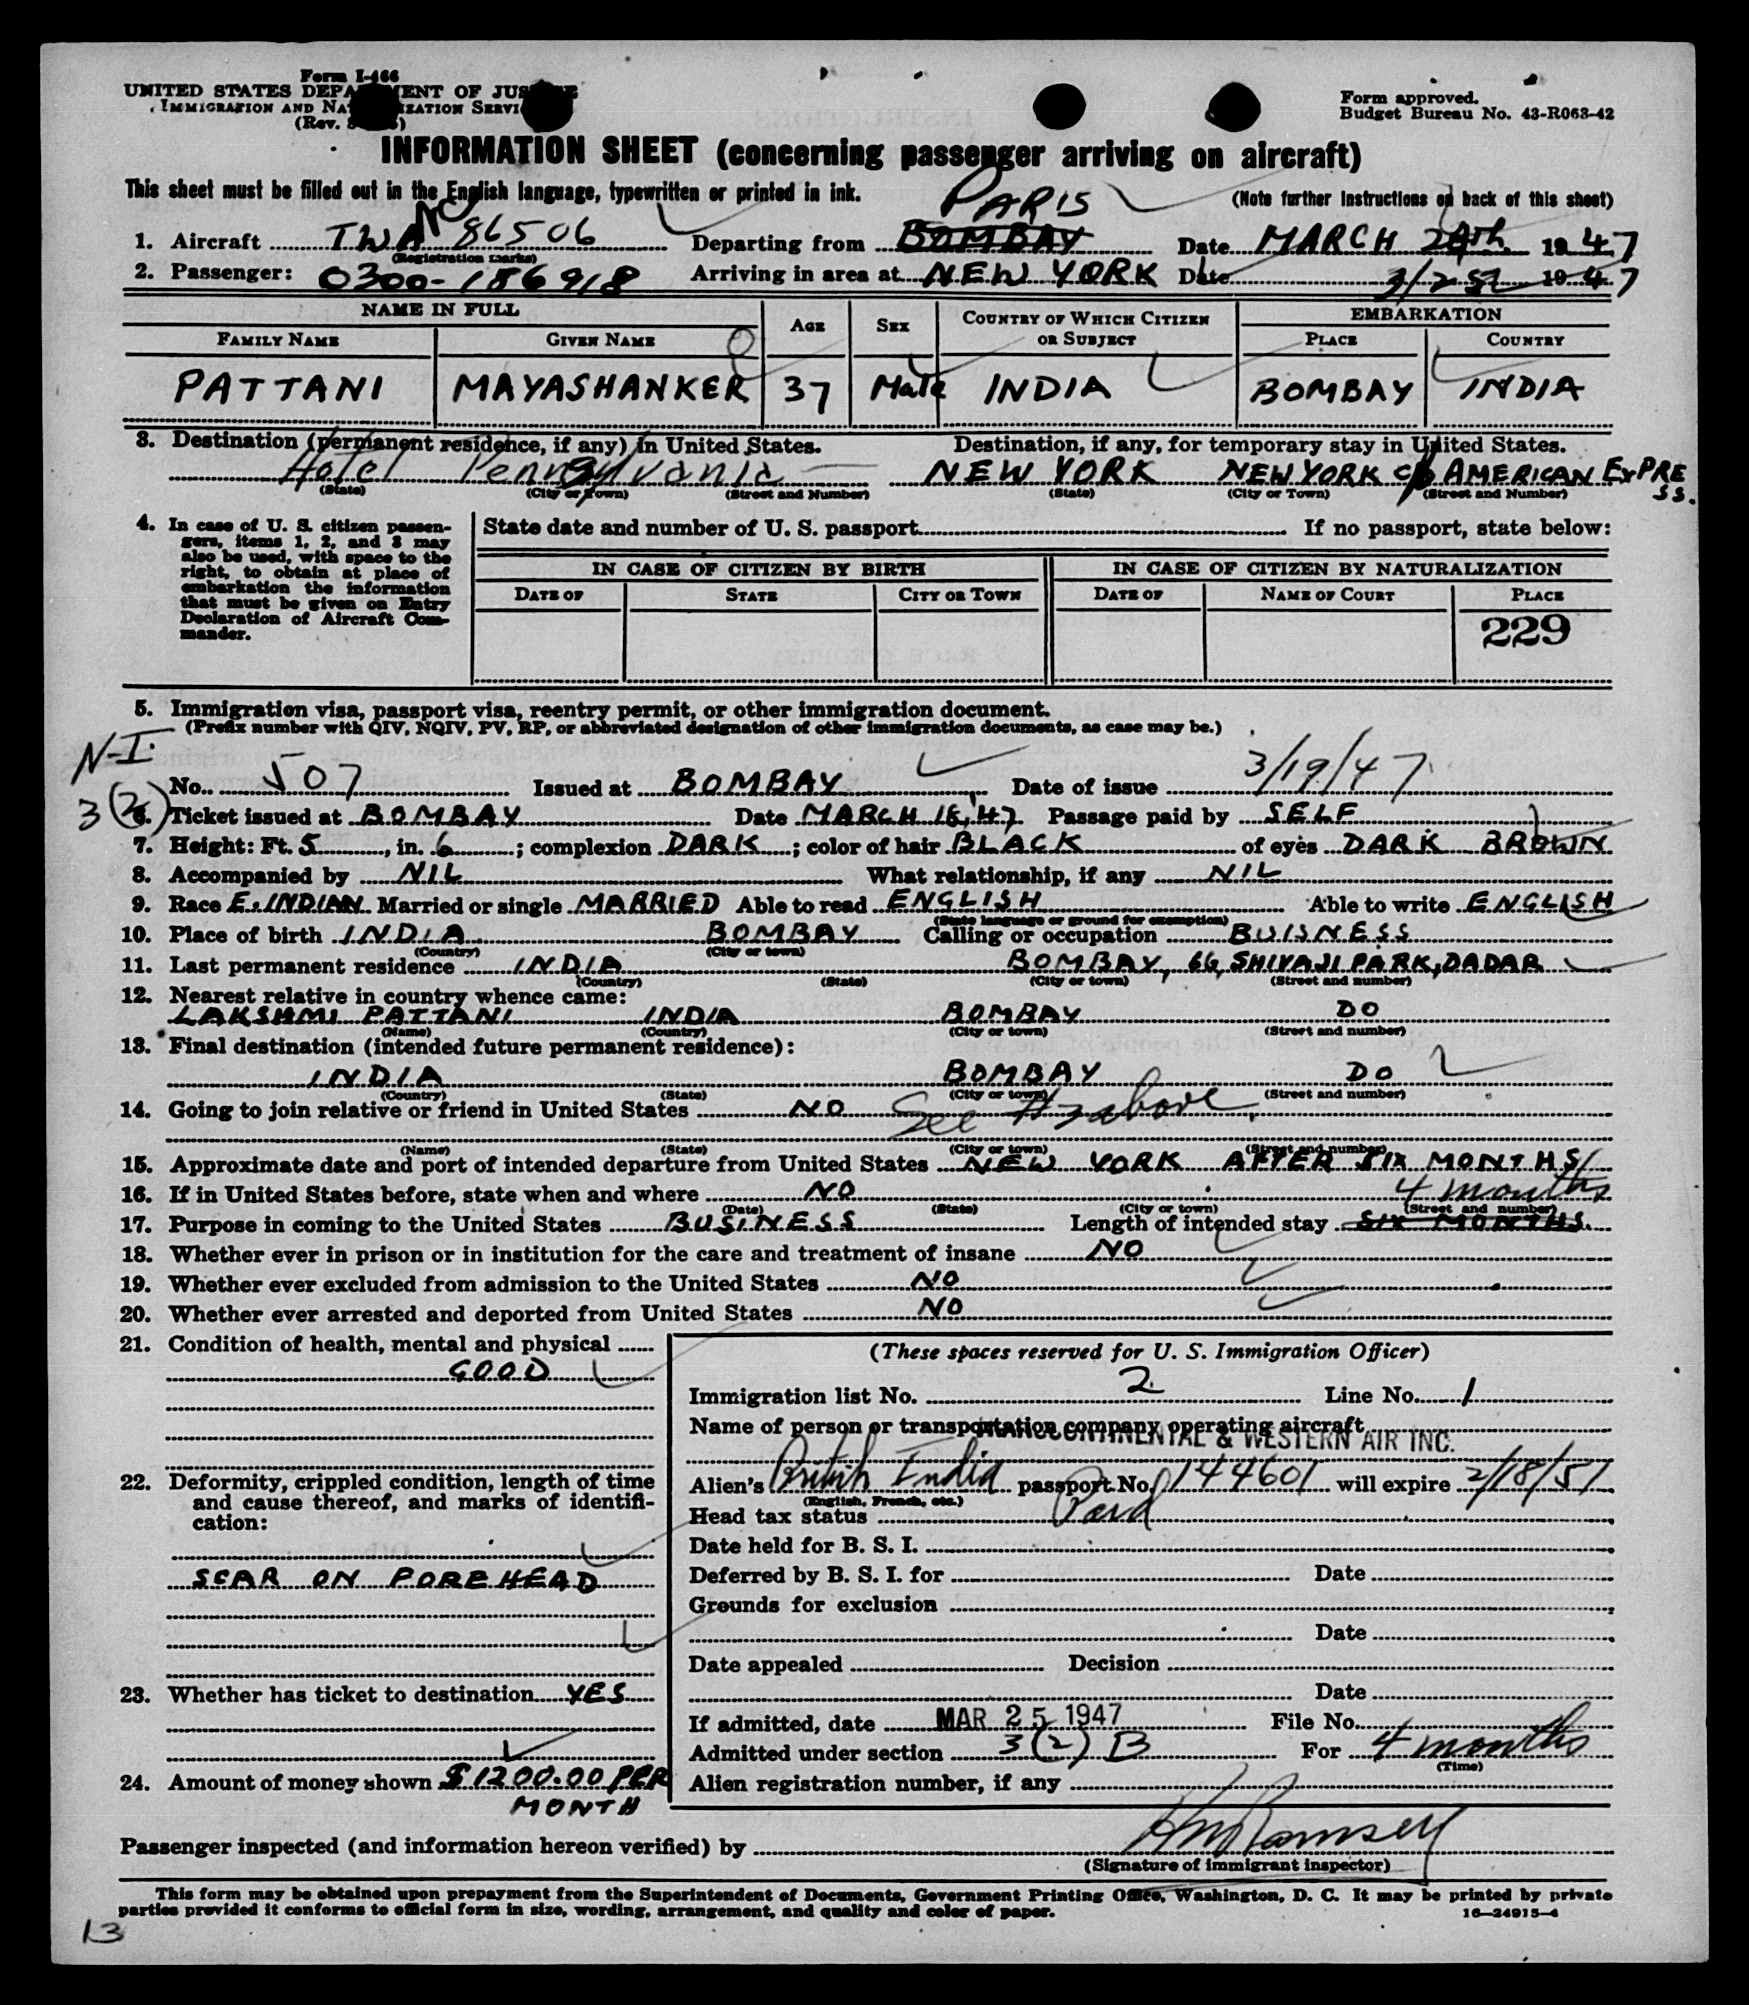 Form I-466
UNITED STATES DEPARTMENT OF JUSTICE
IMMIGRATION AND NATURALIZATION SERVICE
(Rev.
Form approved.
Budget Bureau No. 43-R063-42
INFORMATION SHEET (concerning passenger arriving on aircraft)
This sheet must be filled out in the English language, typewritten or printed in ink.
(Note further instructions on back of this sheet)
PARIS
1. Aircraft TWA NC 86506 Departing from BOMBAY Date MARCH 24th 1947
(Registration marks)
2. Passenger: 0300-186918 Arriving in area at NEW YORK Date 3/25 1947
NAME IN FULL AGE SEX COUNTRY OF WHICH CITIZEN OR SUBJECT EMBARKATION
FAMILY NAME GIVEN NAME PLACE COUNTRY
PATTANI MAYASHANKER 37 Male INDIA BOMBAY INDIA
3. Destination (permanent residence, if any) in United States. Destination, if any, for temporary stay in United States.
Hotel Pennsylvania NEW YORK NEW YORK C/o AMERICAN EXPRESS.
(State) (City or Town) (Street and Number) (State) (City or Town) (Street and Number)
4. In case of U. S. citizen passengers, items 1, 2, and 3 may also be used, with space to the right, to obtain at place of embarkation the information that must be given on Entry Declaration of Aircraft Commander.
State date and number of U. S. passport If no passport, state below:
IN CASE OF CITIZEN BY BIRTH IN CASE OF CITIZEN BY NATURALIZATION
DATE OF STATE CITY OR TOWN DATE OF NAME OF COURT PLACE
229
5. Immigration visa, passport visa, reentry permit, or other immigration document.
(Prefix number with QIV, NQIV, PV, RP, or abbreviated designation of other immigration documents, as case may be.)
N-I.
3(2)
No. 507 Issued at BOMBAY Date of issue 3/19/47
6. Ticket issued at BOMBAY Date MARCH 18, 47. Passage paid by SELF
7. Height: Ft. 5, in. 6; complexion DARK; color of hair BLACK of eyes DARK BROWN
8. Accompanied by NIL What relationship, if any NIL
9. Race E. INDIAN Married or single MARRIED Able to read ENGLISH Able to write ENGLISH
(State language or ground for exemption)
10. Place of birth INDIA BOMBAY Calling or occupation BUISNESS
(Country) (City or town)
11. Last permanent residence INDIA BOMBAY, 66, SHIVAJI PARK, DADAR
(Country) (State) (City or town) (Street and number)
12. Nearest relative in country whence came:
LAKSHMI PATTANI INDIA BOMBAY DO
(Name) (Country) (City or town) (Street and number)
13. Final destination (intended future permanent residence):
INDIA BOMBAY DO
(Country) (State) (City or town) (Street and number)
14. Going to join relative or friend in United States NO See #3 above.
(Name) (State) (City or town) (Street and number)
15. Approximate date and port of intended departure from United States NEW YORK AFTER SIX MONTHS
16. If in United States before, state when and where NO
4 months
(Date) (State) (City or town) (Street and number)
17. Purpose in coming to the United States BUSINESS Length of intended stay SIX MONTHS.
18. Whether ever in prison or in institution for the care and treatment of insane NO
19. Whether ever excluded from admission to the United States NO
20. Whether ever arrested and deported from United States NO
21. Condition of health, mental and physical
GOOD
22. Deformity, crippled condition, length of time and cause thereof, and marks of identification:
SCAR ON FOREHEAD
23. Whether has ticket to destination YES
24. Amount of money shown $1200.00 PER
MONTH
(These spaces reserved for U. S. Immigration Officer)
Immigration list No. 2 Line No. 1
Name of person or transportation company operating aircraft
TRANSCONTINENTAL & WESTERN AIR INC.
Alien's British India passport No. 144601 will expire 2/18/51
(English, French, etc.)
Head tax status Paid
Date held for B. S. I.
Deferred by B. S. I. for Date
Grounds for exclusion
Date
Date appealed Decision
Date
If admitted, date MAR 25 1947 File No.
Admitted under section 3(2) B For 4 months
(Time)
Alien registration number, if any
Passenger inspected (and information hereon verified) by Ramsey
(Signature of immigrant inspector)
This form may be obtained upon prepayment from the Superintendent of Documents, Government Printing Office, Washington, D. C. It may be printed by private
parties provided it conforms to official form in size, wording, arrangement, and quality and color of paper.
16—24915-4
13